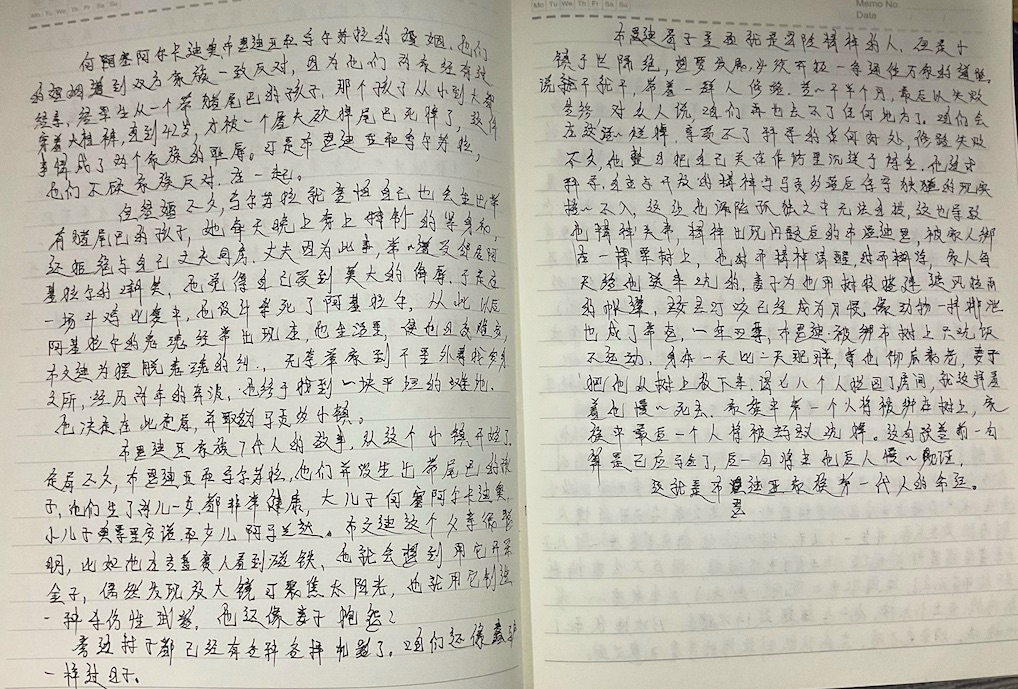 Mo Tu We Th Fr Sa Su
何塞阿尔卡迪奥布恩迪亚和乌尔苏拉的婚姻。他们
的婚姻遭到双方家族一致反对，因为他们两家经有过
经亲，居然生出一个带猪尾巴的孩子，那个孩子从小到大都
穿着大桂裤，直到42岁，才被一个屠夫砍掉尾巴死掉了，这件
事情成了两个家族的耻辱。可是布恩迪亚和乌尔苏拉，
他们不顾家族反对，在一起。
但结婚不久，乌尔苏拉就害怕自己也会生出带
有猪尾巴的孩子，她每天晚上穿上特制的紧身裤，
还拒绝与自己丈夫同房。丈夫因为此事，常遭受邻居阿
基拉尔的嘲笑，他觉得自己受到莫大的侮辱。于是在
一场斗鸡比赛中，他设计杀死了阿基拉尔，从此以后
阿基拉尔的鬼魂经常出现在他生活里，
为摆脱鬼魂的纠，无奈举家到千里外寻找安身
之所，经历两年的奔波，他终于找到一块平坦的地，
他决定在此定居，并取名马贡多小镇。
布恩迪亚家族7代人的故事，从这个小镇开始了。
定居不久，布恩迪亚和乌尔苏拉，他们并没生出带尾巴的孩
子，他们生了两儿一女都非常健康，大儿子何塞阿尔卡迪奥，
小儿子奥雷里安诺和女儿阿玛兰妲。这个父亲很聪
明，比如他在吉普赛人看到磁铁，他就会想到用它开采
金子，偶然发现放大镜可聚焦太阳光，他就用它制造
一种杀伤性武器，他还像妻子抱怨：
旁边村子都已经有各种各样机器了，咱们还像蠢驴
一样过日子。
Mo Tu We Th Fr Sa Su
Memo No.
Data
布恩迪亚骨子里面就是冒险精神的人，但是小
镇于世隔绝，想要发展，必须开拓一条通往外界的道路，
说干就干，带着一群人修路，花了半个月，最后以失败
告终，对家人说，咱们再也去不了任何地方了，咱们会
在这活活烂掉，享受不了科学的任何好处，修路失败
不久，他整日把自己关在作坊里沉迷于
科学，自立与开放的精神与马贡多落后保守的现实
格格不入，这让他深陷孤独之中无法自拔，这也导致
他精神失常，精神出现问题后的布恩迪亚，被家人绑
在一棵栗树上，他时而精神清醒，时而糊涂，家人每
天给他送来吃的，妻子为他用树枝搭建遮风挡雨
的帐篷，已经成为习惯，像动物一样排泄
也成了常态，一年四季，布恩迪亚被绑在树上只吃饭
不运动，身体一天比一天肥胖，等他衰老，妻子
把他从树上放下来，八个人抬回了房间，就这样看
着他慢慢死去。家族中第一个人将被绑在树上，家
族中最后一个人将被蚂蚁吃掉。这句谶言前一句
算是已应验了，后一句将由他后人慢慢验证。
这就是布恩迪亚家族第一代人的命运。